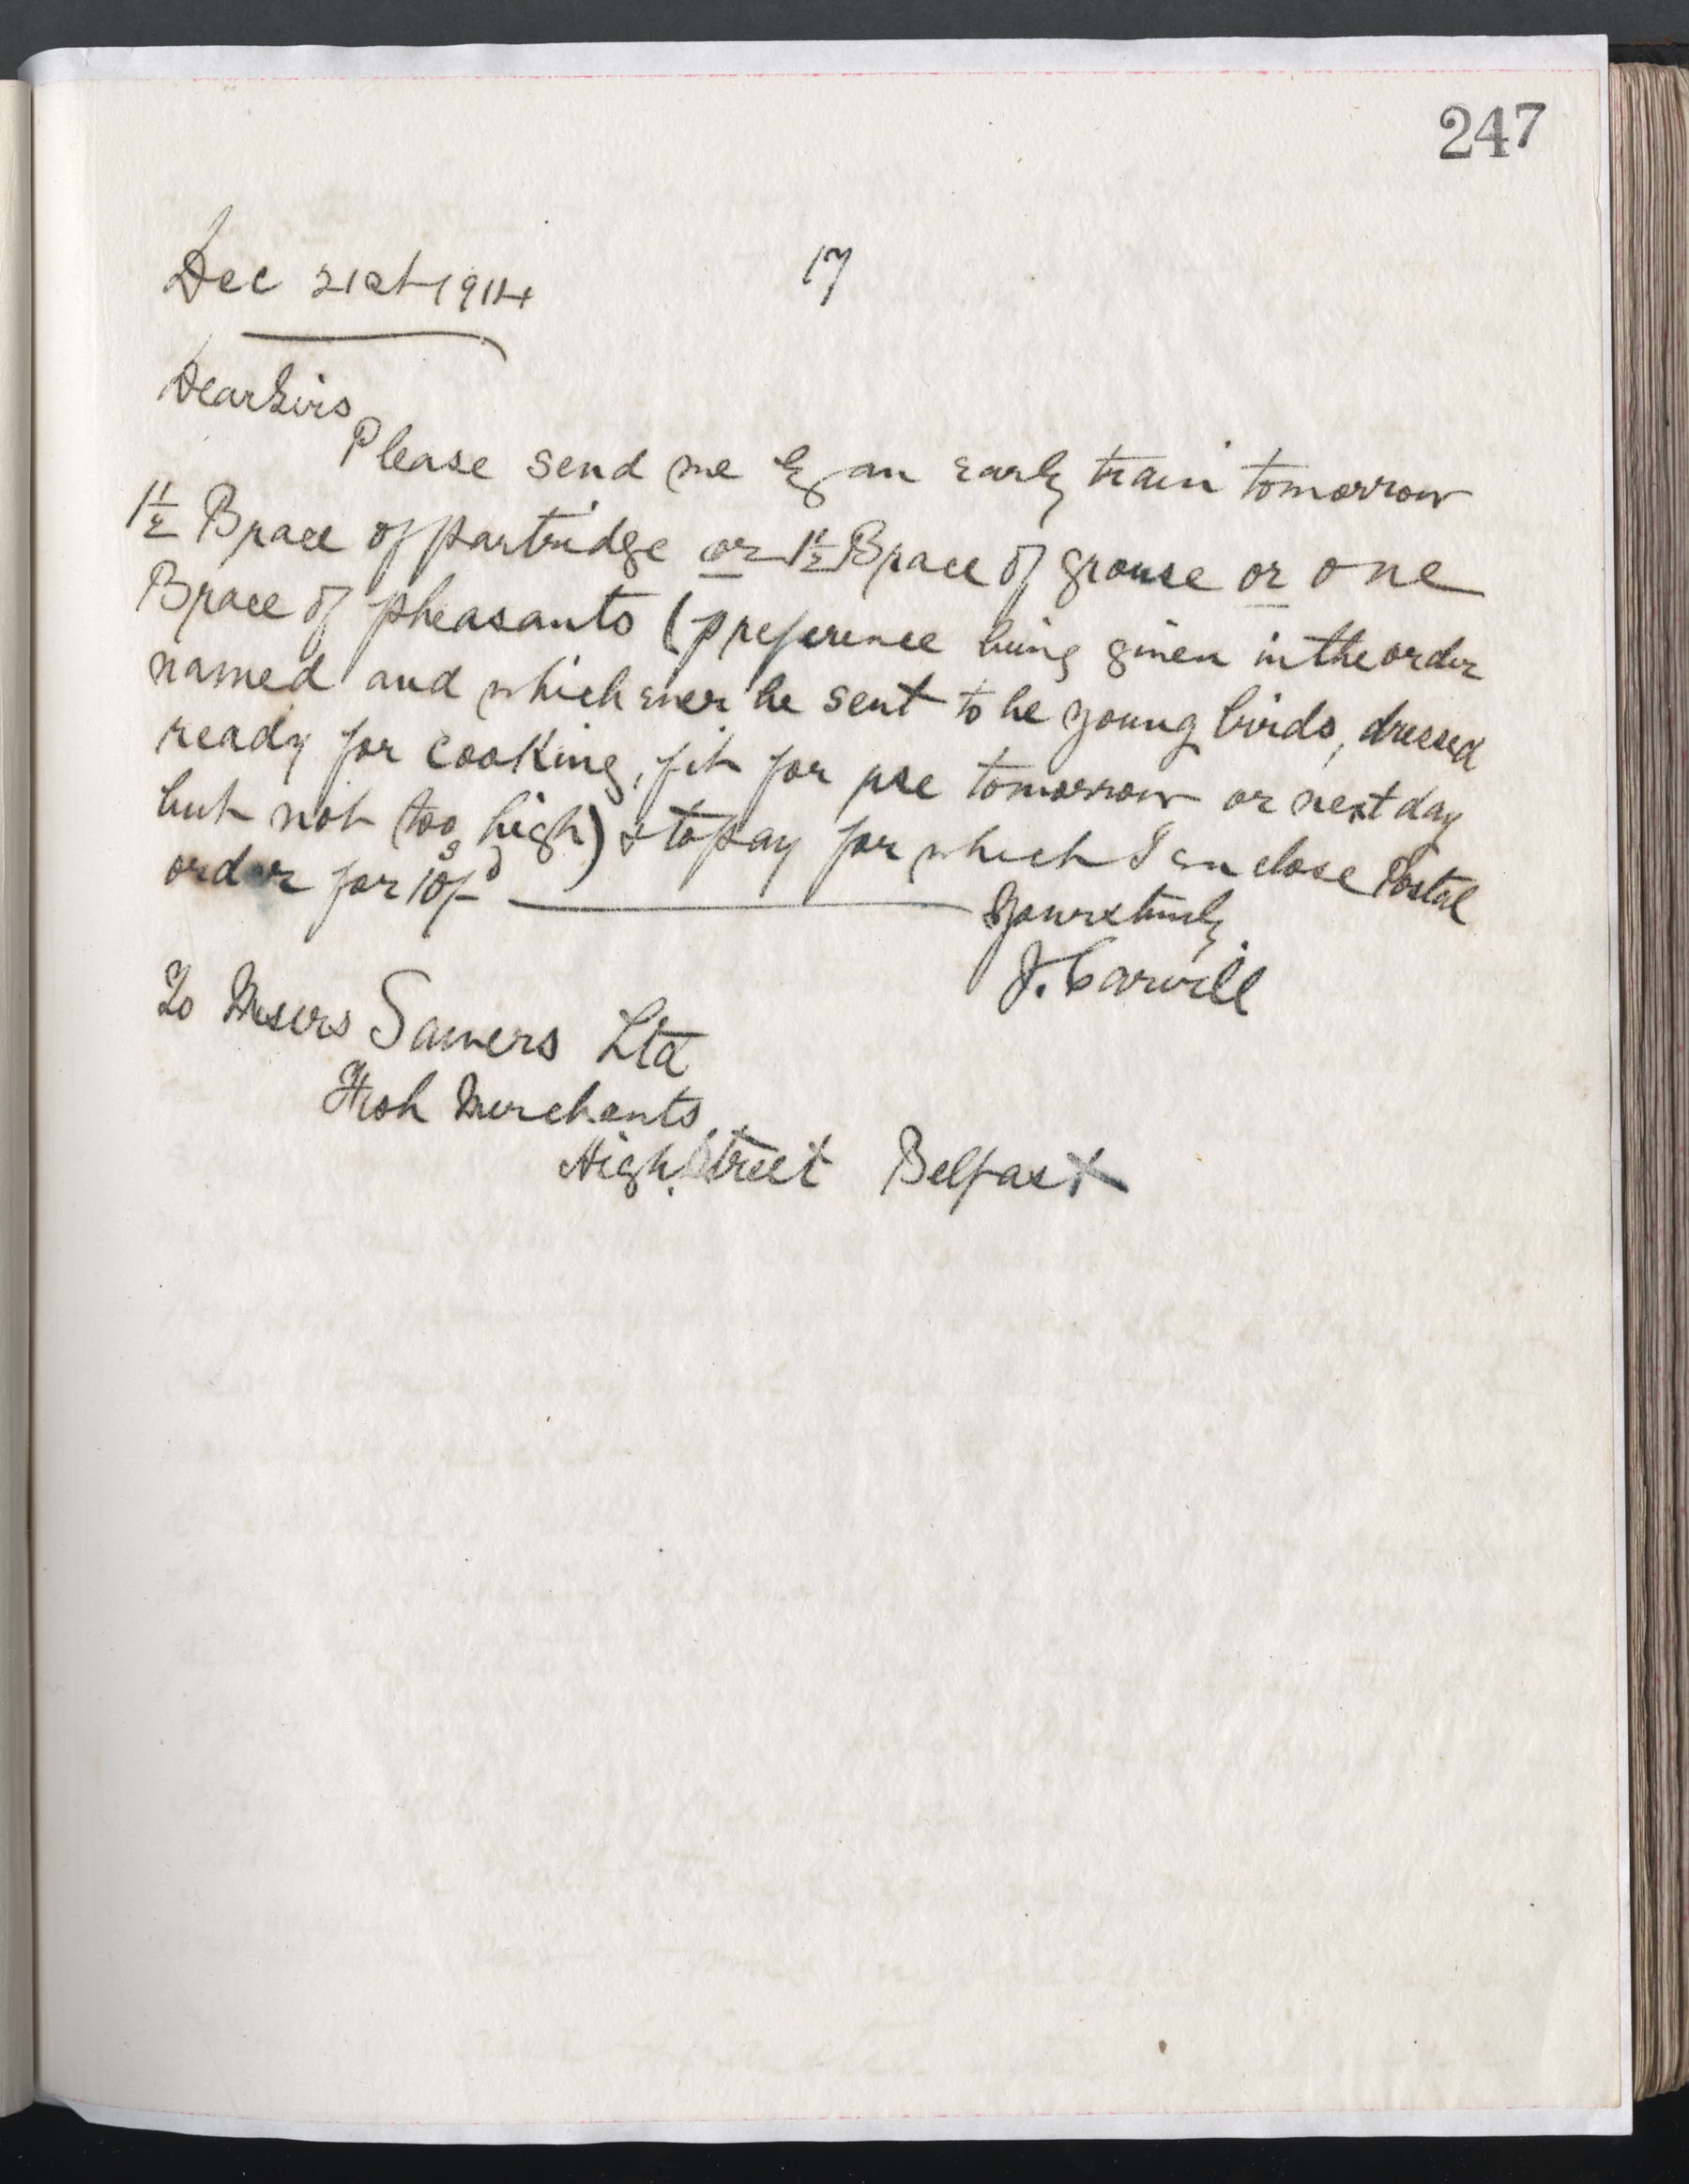 247
Dec 21st 1914
17
Dear Sirs
Please send me by an early train tomorrow
1½ Brace of partridge or 1½ Brace of grouse or one
Brace of pheasants (preference being given in the order
named and whichever be sent to be young birds, dressed
ready for cooking, fit for use tomorrow or next day
but not too high) & to pay for which I enclose Postal
order for 10s/-d
Yours truly
J. Carvill
To Messrs Sawers Ltd
Fish Merchants,
High Street Belfast